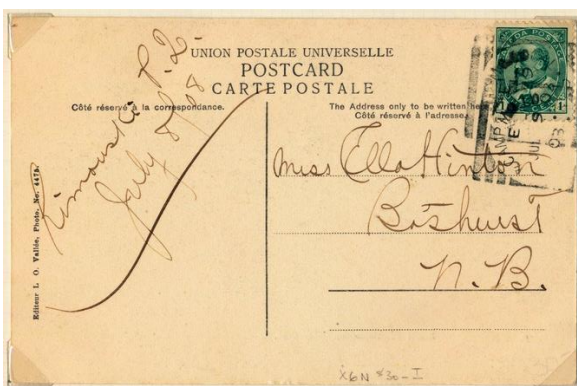 UNION POSTALE UNIVERSELLE
POSTCARD
CARTE POSTALE
Côté réservé à la correspondance.
The Address only to be written here
Côté réservé à l'adresse.
Rimouski P.2.
July 8/08
Miss Ella Hinton
Bathurst
N.B.
Editeur L. O. Vallée, Photo. No. 4476
CAMP
X6N #30-I